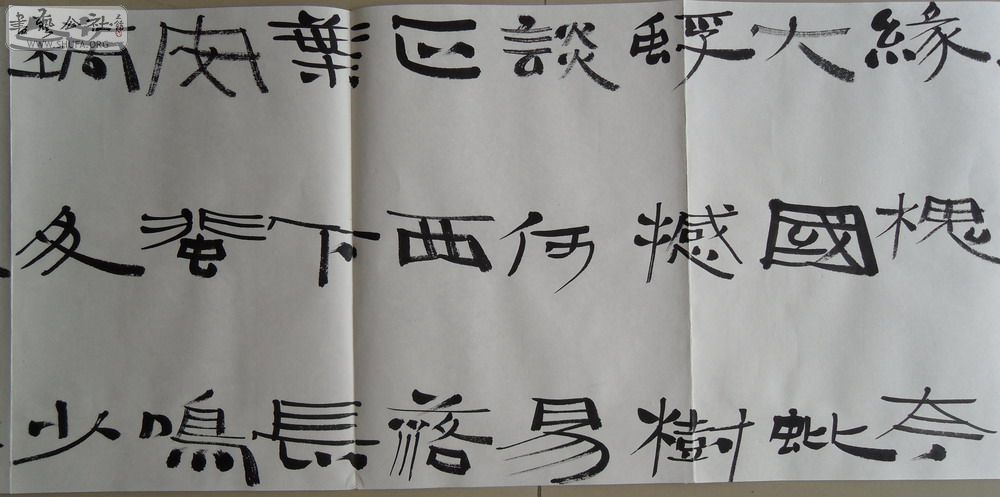 緣槐夸
大國蚍
蜉撼樹
談何易
正西落
葉下長
安蜚鳴
鏑多少
書藝公社
WWW.SHUFA.ORG